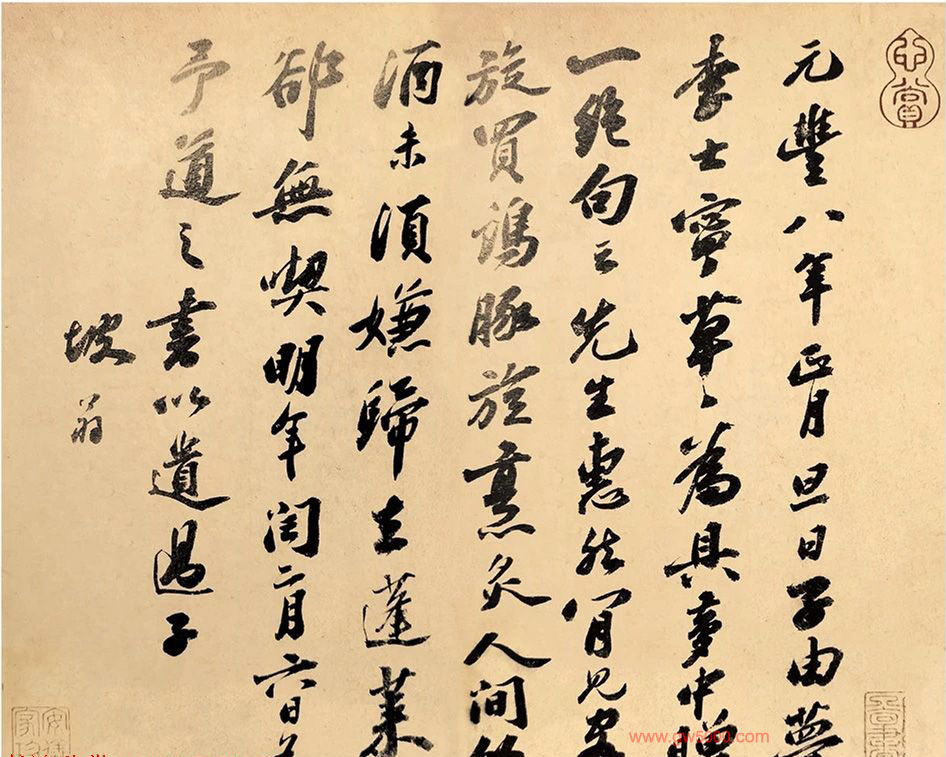 元豐八年正月旦日子由夢
李士寧草〻為具夢中贈
一絕句云先生惠然肯見客
旋買鷄豚旋烹炙人間
酒未須嫌歸去蓬萊
卻無喫明年閏二月六日為
予道之書以遺過子
坡翁
www.gw5000.com